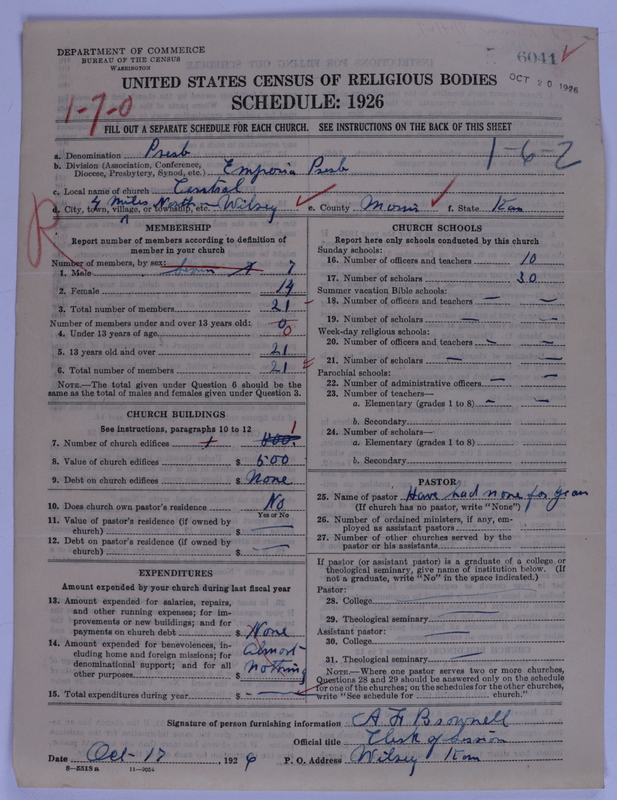 DEPARTMENT OF COMMERCE
BUREAU OF THE CENSUS
WASHINGTON
6041
OCT 20 1926
UNITED STATES CENSUS OF RELIGIOUS BODIES
SCHEDULE: 1926
1-7-0
FILL OUT A SEPARATE SCHEDULE FOR EACH CHURCH. SEE INSTRUCTIONS ON THE BACK OF THIS SHEET
1-6-2
a. Denomination Presb
b. Division (Association, Conference, Diocese, Presbytery, Synod, etc.) Emporia Presb
c. Local name of church Central
d. City, town, village, or township, etc. 4 miles North Wilsey e. County Morris f. State Kan
R
MEMBERSHIP
Report number of members according to definition of
member in your church
Number of members, by sex:
1. Male 7
2. Female 14
3. Total number of members 21
Number of members under and over 13 years old:
4. Under 13 years of age 0
0
5. 13 years old and over 21
6. Total number of members 21
NOTE.—The total given under Question 6 should be
same as the total of males and females given under Question 3.
CHURCH BUILDINGS
See instructions, paragraphs 10 to 12
1
7. Number of church edifices 1 500.
8. Value of church edifices $ 500
9. Debt on church edifices $ None
10. Does church own pastor's residence No
Yes or No
11. Value of pastor's residence (if owned by
church) $ —
12. Debt on pastor's residence (if owned by
church) $ —
EXPENDITURES
Amount expended by your church during last fiscal year
13. Amount expended for salaries, repairs,
and other running expenses; for im-
provements or new buildings; and for
payments on church debt $ None
14. Amount expended for benevolences, in-
cluding home and foreign missions; for
denominational support; and for all
other purposes $ almost nothing
15. Total expenditures during year $ —
CHURCH SCHOOLS
Report here only schools conducted by this church
Sunday schools:
16. Number of officers and teachers 10
17. Number of scholars 30
Summer vacation Bible schools:
18. Number of officers and teachers — —
19. Number of scholars — —
Week-day religious schools:
20. Number of officers and teachers — —
21. Number of scholars — —
Parochial schools:
22. Number of administrative officers — —
23. Number of teachers—
a. Elementary (grades 1 to 8) — —
b. Secondary
24. Number of scholars—
a. Elementary (grades 1 to 8)
b. Secondary
PASTOR
25. Name of pastor Have had none for years
(If church has no pastor, write "None")
26. Number of ordained ministers, if any, em-
ployed as assistant pastors
27. Number of other churches served by the
pastor or his assistants
If pastor (or assistant pastor) is a graduate of a college or
theological seminary, give name of institution below. (If
not a graduate, write "No" in the space indicated.)
Pastor:
28. College —
29. Theological seminary —
Assistant pastor:
30. College —
31. Theological seminary —
NOTE.—Where one pastor serves two or more churches,
Questions 28 and 29 should be answered only on the schedule
for one of the churches; on the schedules for the other churches,
write "See schedule for church."
Signature of person furnishing information A H Brownell
Official title Clerk of Session
Date Oct-17, 1926 P. O. Address Wilsey Kan
8-5518a 11-9054